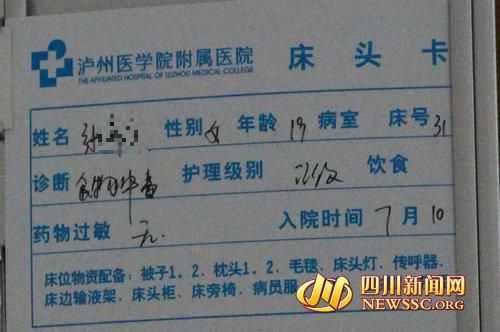 泸州医学院附属医院 床头卡
THE AFFILIATED HOSPITAL OF LUZHOU MEDICAL COLLEGE
姓名 性别 女 年龄 19 病室 床号 31
诊断 食物中毒 护理级别 饮食
药物过敏 无. 入院时间 7月10
床位物资配备：被子1.2、枕头1.2、毛毯、床头灯、传呼器、
床边输液架、床头柜、床旁椅、病员服
四川新闻网
NEWSSC.ORG